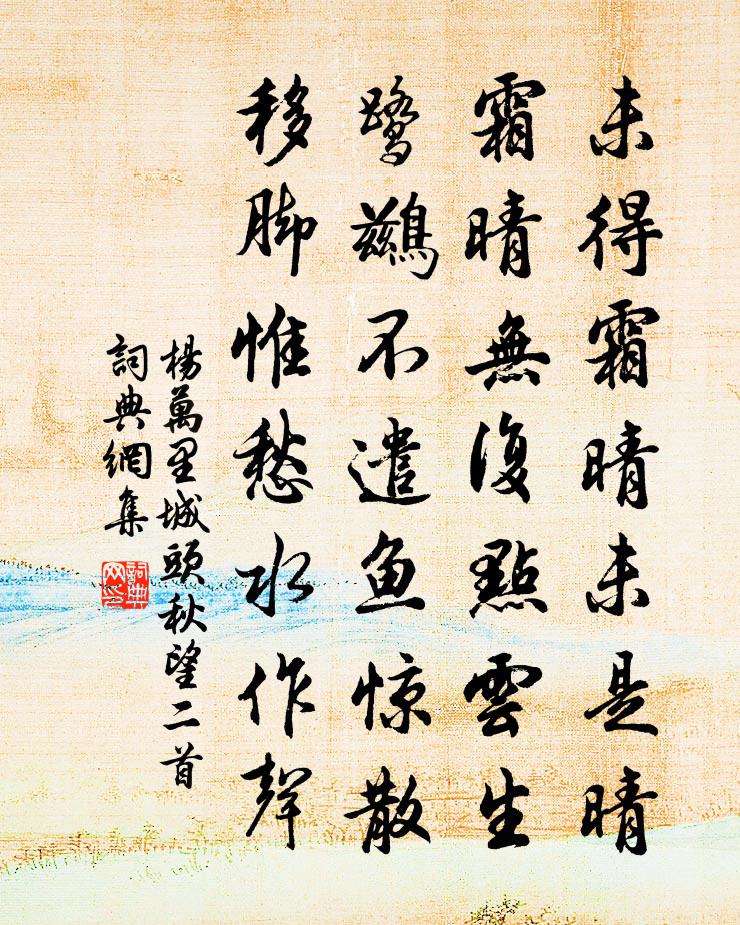 未得霜晴未是晴
霜晴無復點雲生
鷺鷀不遣魚惊散
移脚惟愁水作聲
楊萬里城頭秋望二首
詞典網集
詞典网印